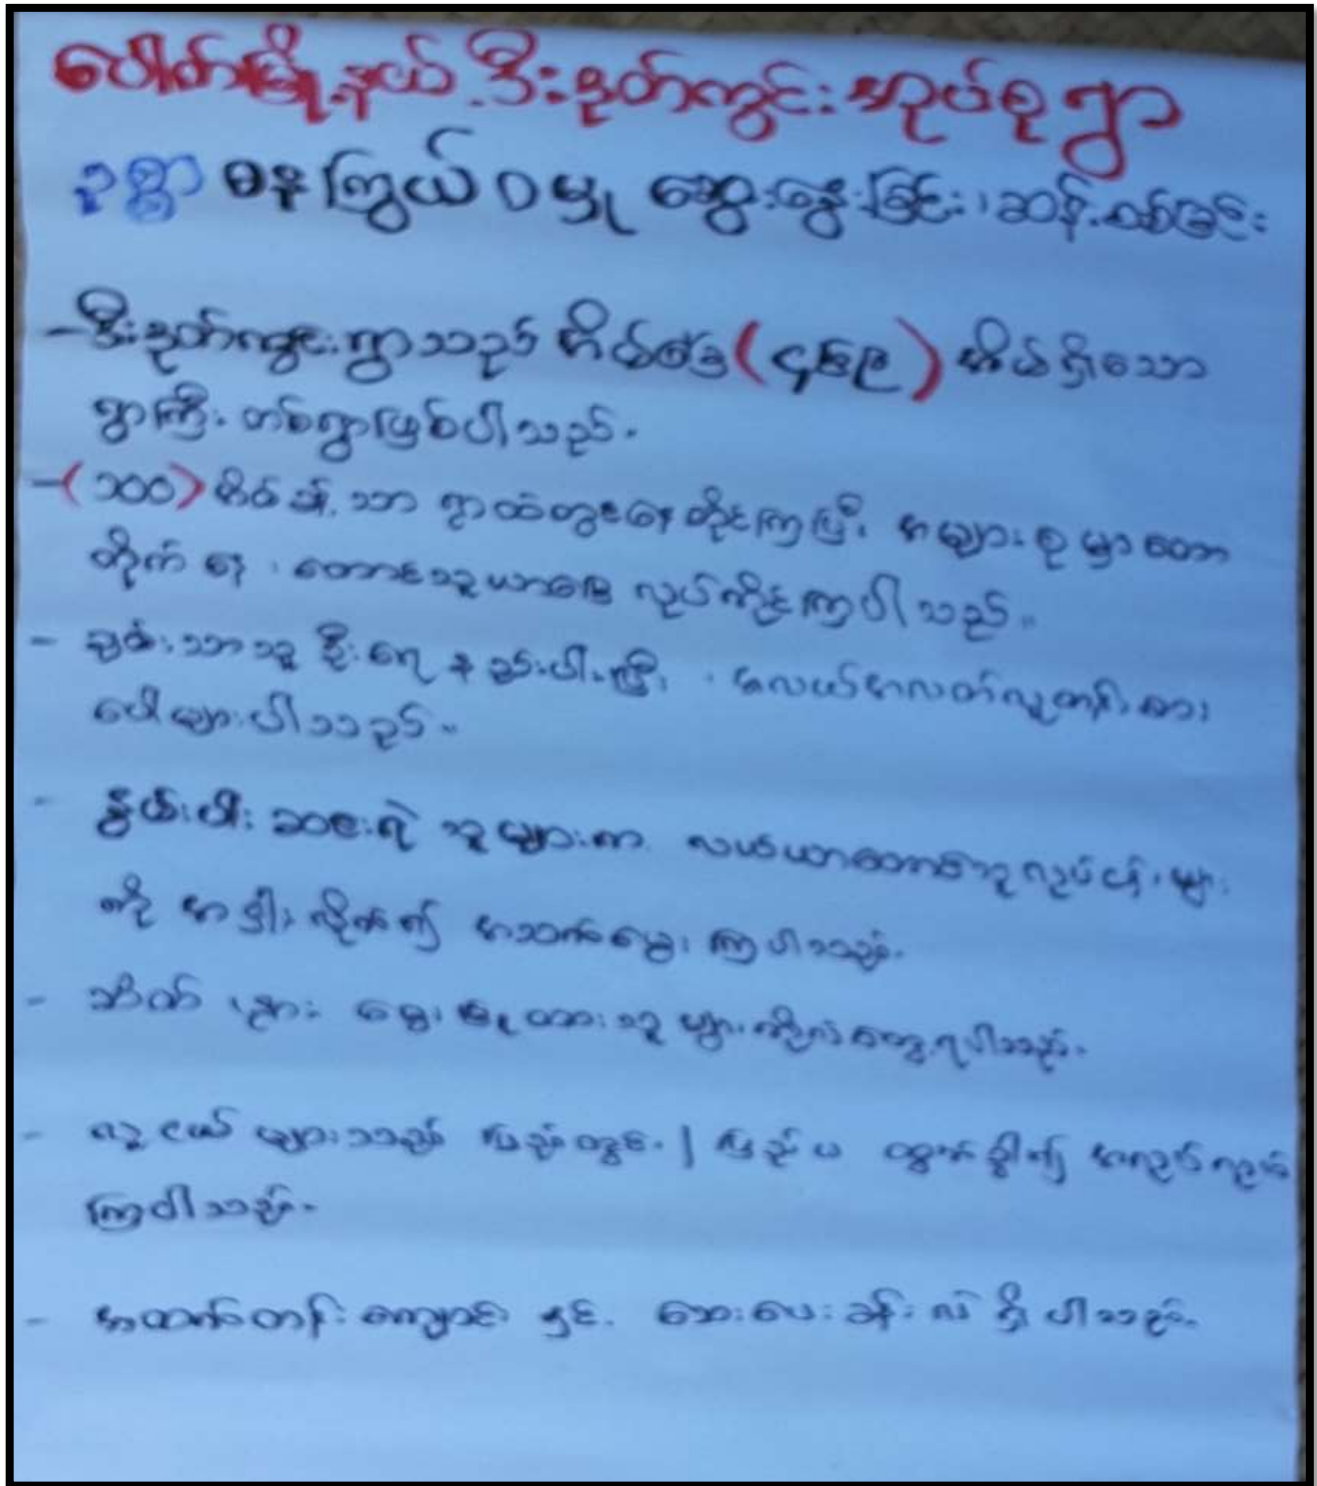 ပေါက်မြို့နယ် ဒီးဒုတ်ကွင်းအုပ်စု ရွာ
ဥစ္စာ ဓနကြွယ်ဝမှု ဆွေးနွေးခြင်း၊ဆန်းစစ်ခြင်း
- ဒီးဒုတ်ကွင်းရွာသည် အိမ်ခြေ (၄၈၉) အိမ်ရှိသော
ရွာကြီး တစ်ရွာဖြစ်ပါသည်။
- (၁၀၀) အိမ်ခန့်သာ ရွာထဲတွင်နေထိုင်ကြပြီး အများစုမှာ တော
တိုက်နေ၊ တောင်သူယာမြေ လုပ်ကိုင်ကြပါသည်။
- ချမ်းသာသူ ဦးရေ နည်းပါးပြီး၊ အလယ်အလတ်လူတန်းစား
ပေါများပါသည်။
- နွမ်းပါး ဆင်းရဲ သူများက လယ်ယာတောင်သူလုပ်ငန်းများ
ကို အငှါးလိုက်၍ အသက်မွေးကြပါသည်။
- ဆိတ် ၊နွား မွေးမြူထားသူများကိုလဲတွေ့ရပါသည်။
- လူငယ်များသည် ပြည်တွင်း / ပြည်ပ ထွက်ခွါ၍ အလုပ်လုပ်
ကြပါသည်။
- အထက်တန်းကျောင်း နှင့် ဆေးပေးခန်းလဲ ရှိပါသည်။